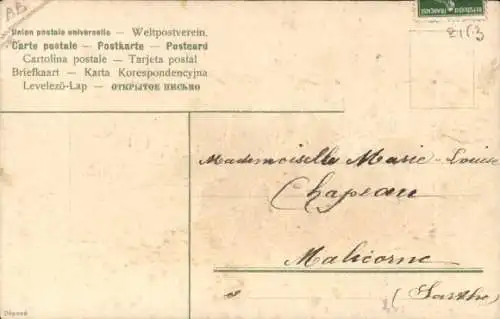 AB
Union postale universelle — Weltpostverein.
Carte postale — Postkarte — Postcard
Cartolina postale — Tarjeta postal
Briefkaart — Karta Korespondencyjna
Levelező-Lap — ОТКРЫТОЕ ПИСЬМО
FRANÇAISE
2153
Mademoiselle Marie-Louise
Chapeau
Malicorne
(Sarthe)
Déposé